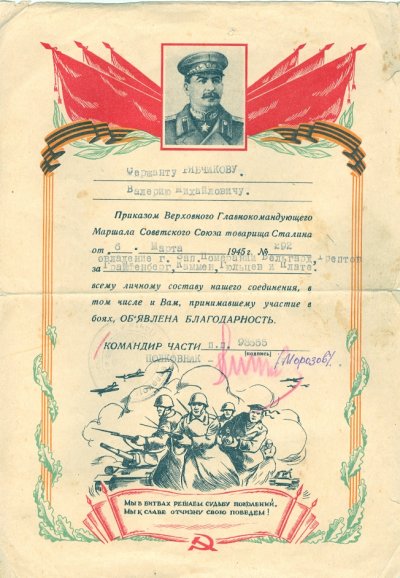 Сержанту РЯБЧИКОВУ.
Валерию Михайловичу.
Приказом Верховного Главнокомандующего
Маршала Советского Союза товарища Сталина
от 6 Марта 1945 г. № 292
овладение г. Зап. Померании Бельгард, Трептов
за Грайфенберг, Каммин, Гюльцев и Плате.
всему личному составу нашего соединения, в
том числе и Вам, принимавшему участие в
боях, ОБ'ЯВЛЕНА БЛАГОДАРНОСТЬ.
КОМАНДИР ЧАСТИ п.п. 93555
ПОЛКОВНИК - (подпись) (Морозов).
МЫ В БИТВАХ РЕШАЕМ СУДЬБУ ПОКОЛЕНИЙ,
МЫ К СЛАВЕ ОТЧИЗНУ СВОЮ ПОВЕДЕМ!